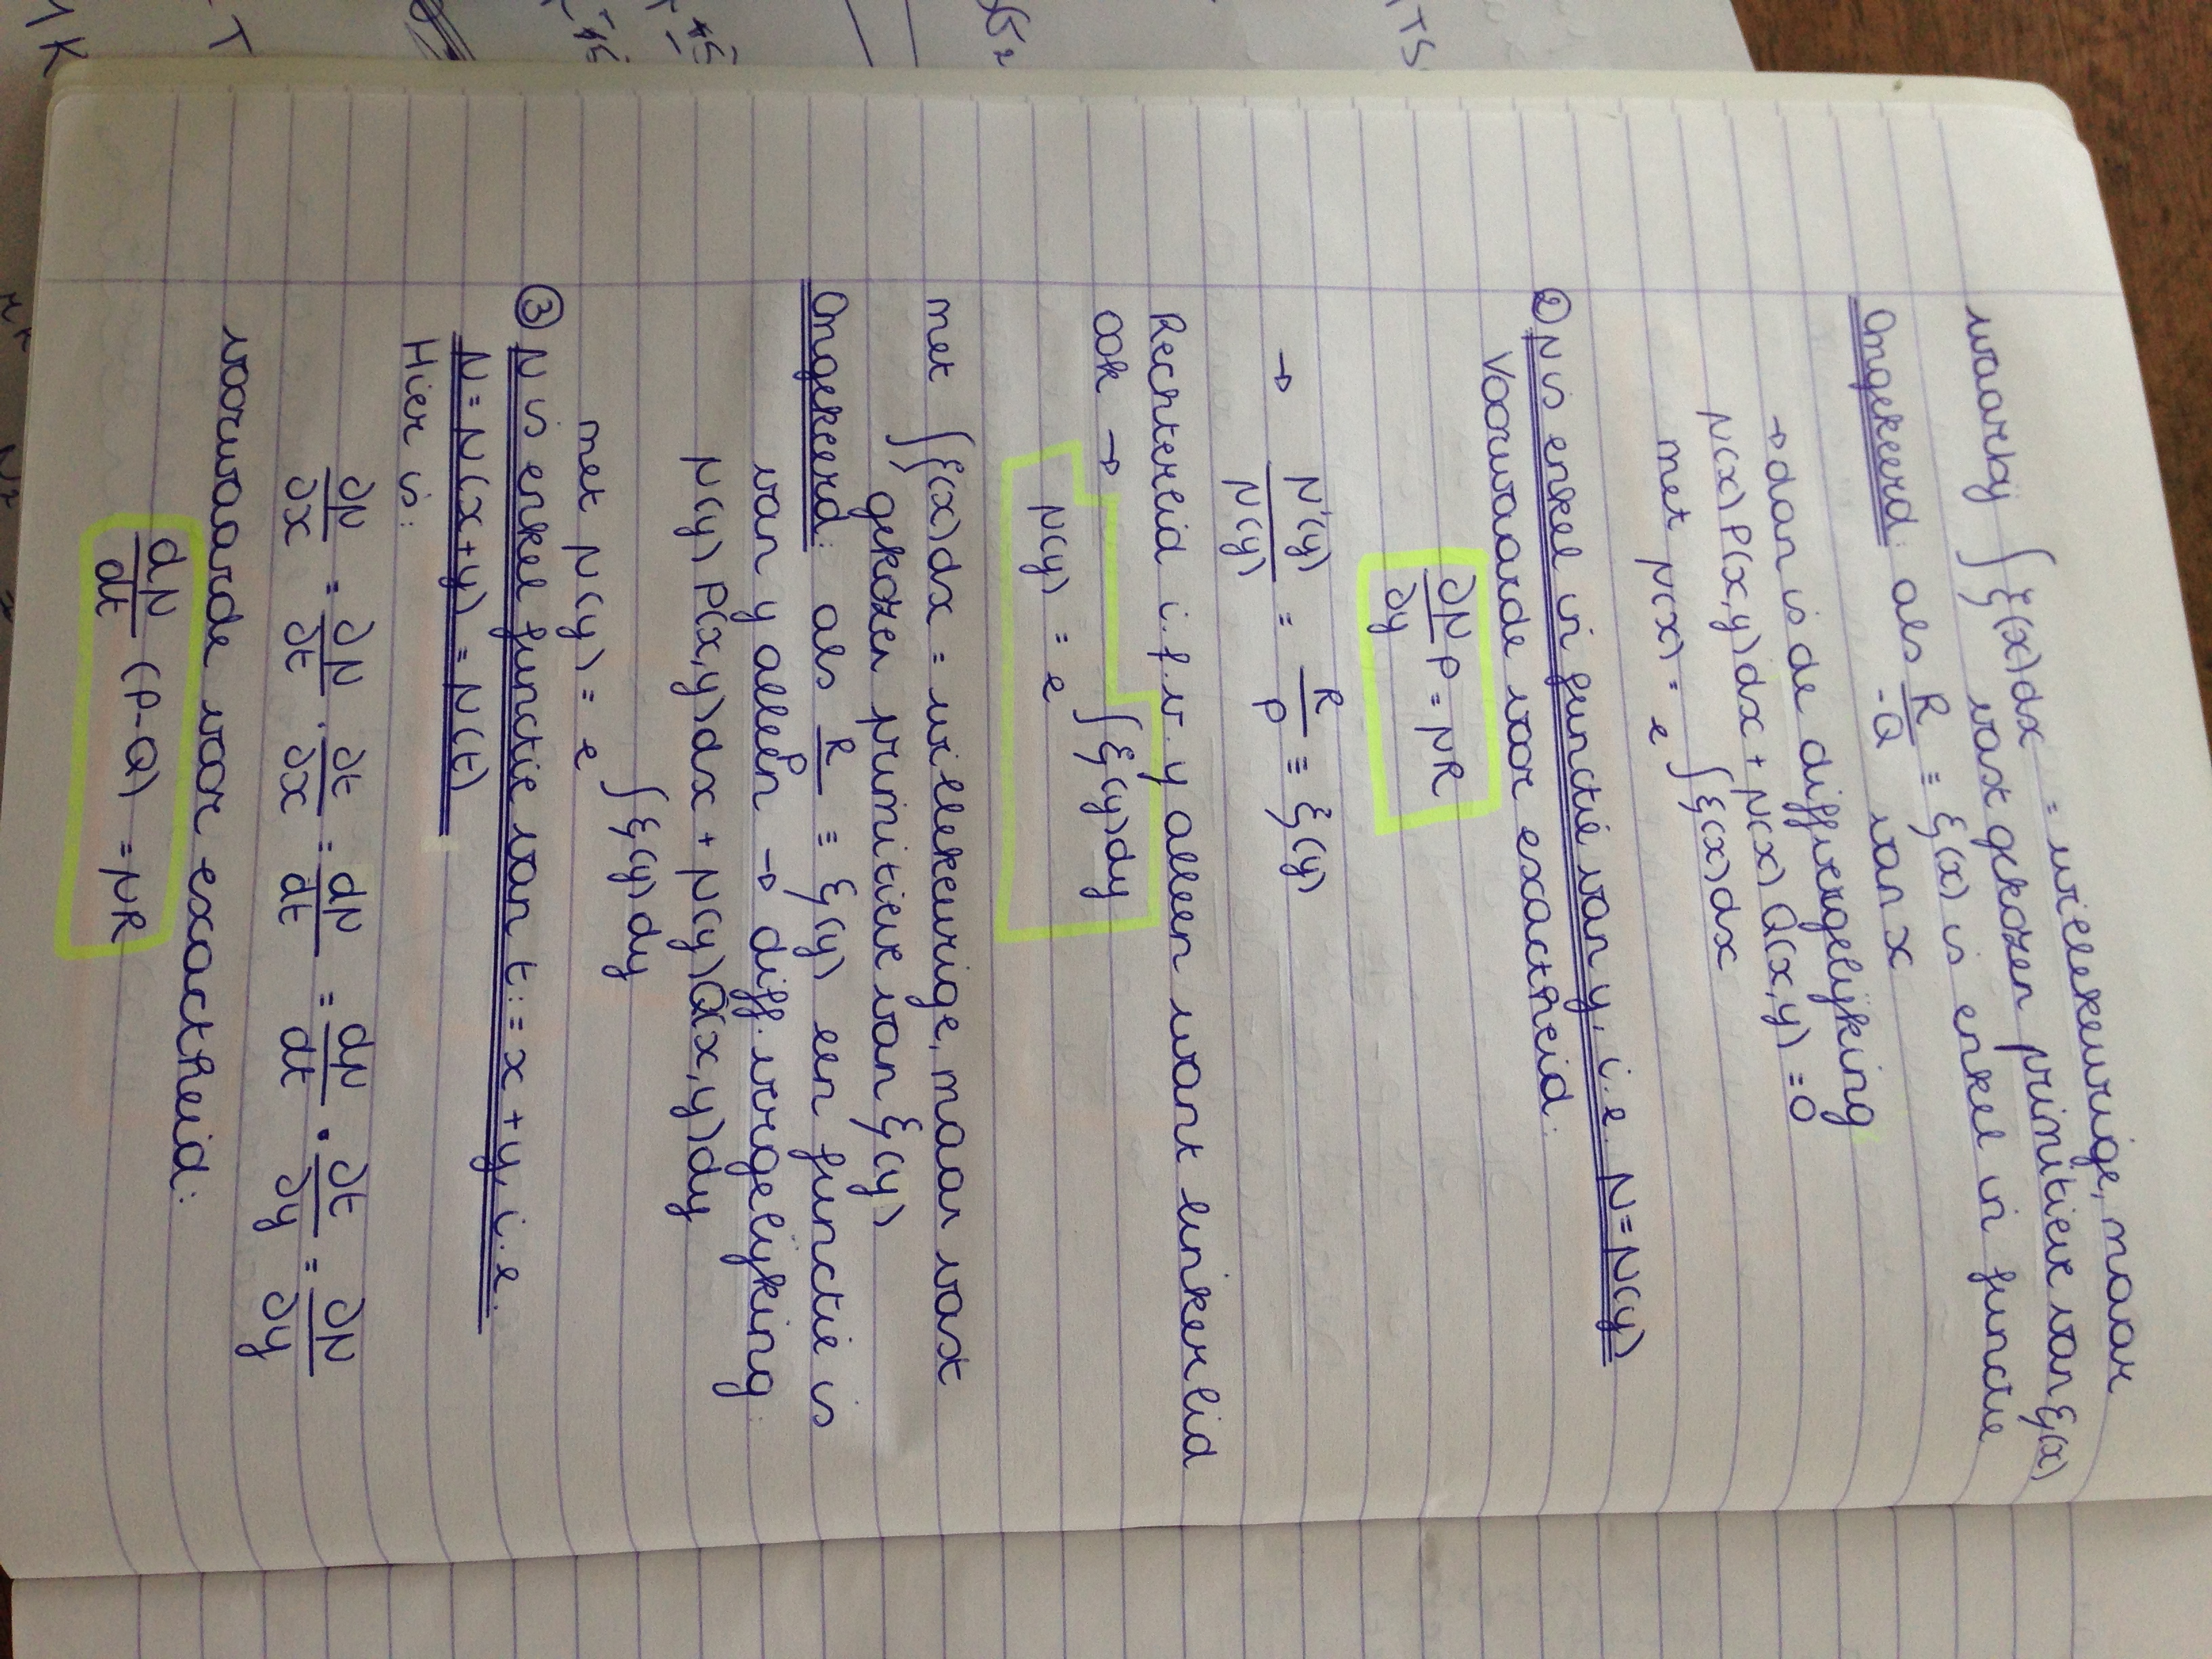 waarbij ∫ξ(x)dx = willekeurige, maar
vast gekozen primitieve van ξ(x)
Omgekeerd: als R/-Q ≡ ξ(x) is enkel in functie
van x
→ dan is de diffvergelijking
μ(x)P(x,y)dx + μ(x)Q(x,y) = 0
met μ(x) = e^∫ξ(x)dx
② μ is enkel in functie van y, i.e. μ=μ(y)
Voorwaarde voor exactheid:
∂μ/∂y P = μR
→ μ'(y)/μ(y) = R/P ≡ ξ(y)
Rechterlid i.f.v. y alleen want linkerlid
ook →
μ(y) = e^∫ξ(y)dy
met ∫ξ(x)dx = willekeurige, maar vast
gekozen primitieve van ξ(y)
Omgekeerd: als R/P ≡ ξ(y) een functie is
van y alleen → diff. vergelijking:
μ(y)P(x,y)dx + μ(y)Q(x,y)dy
met μ(y) = e^∫ξ(y)dy
③ μ is enkel functie van t:=x+y, i.e.
μ=μ(x+y) = μ(t)
Hier is:
∂μ/∂x = ∂μ/∂t · ∂t/∂x = dμ/dt = dμ/dt · ∂t/∂y = ∂μ/∂y
voorwaarde voor exactheid:
dμ/dt (P-Q) = μR